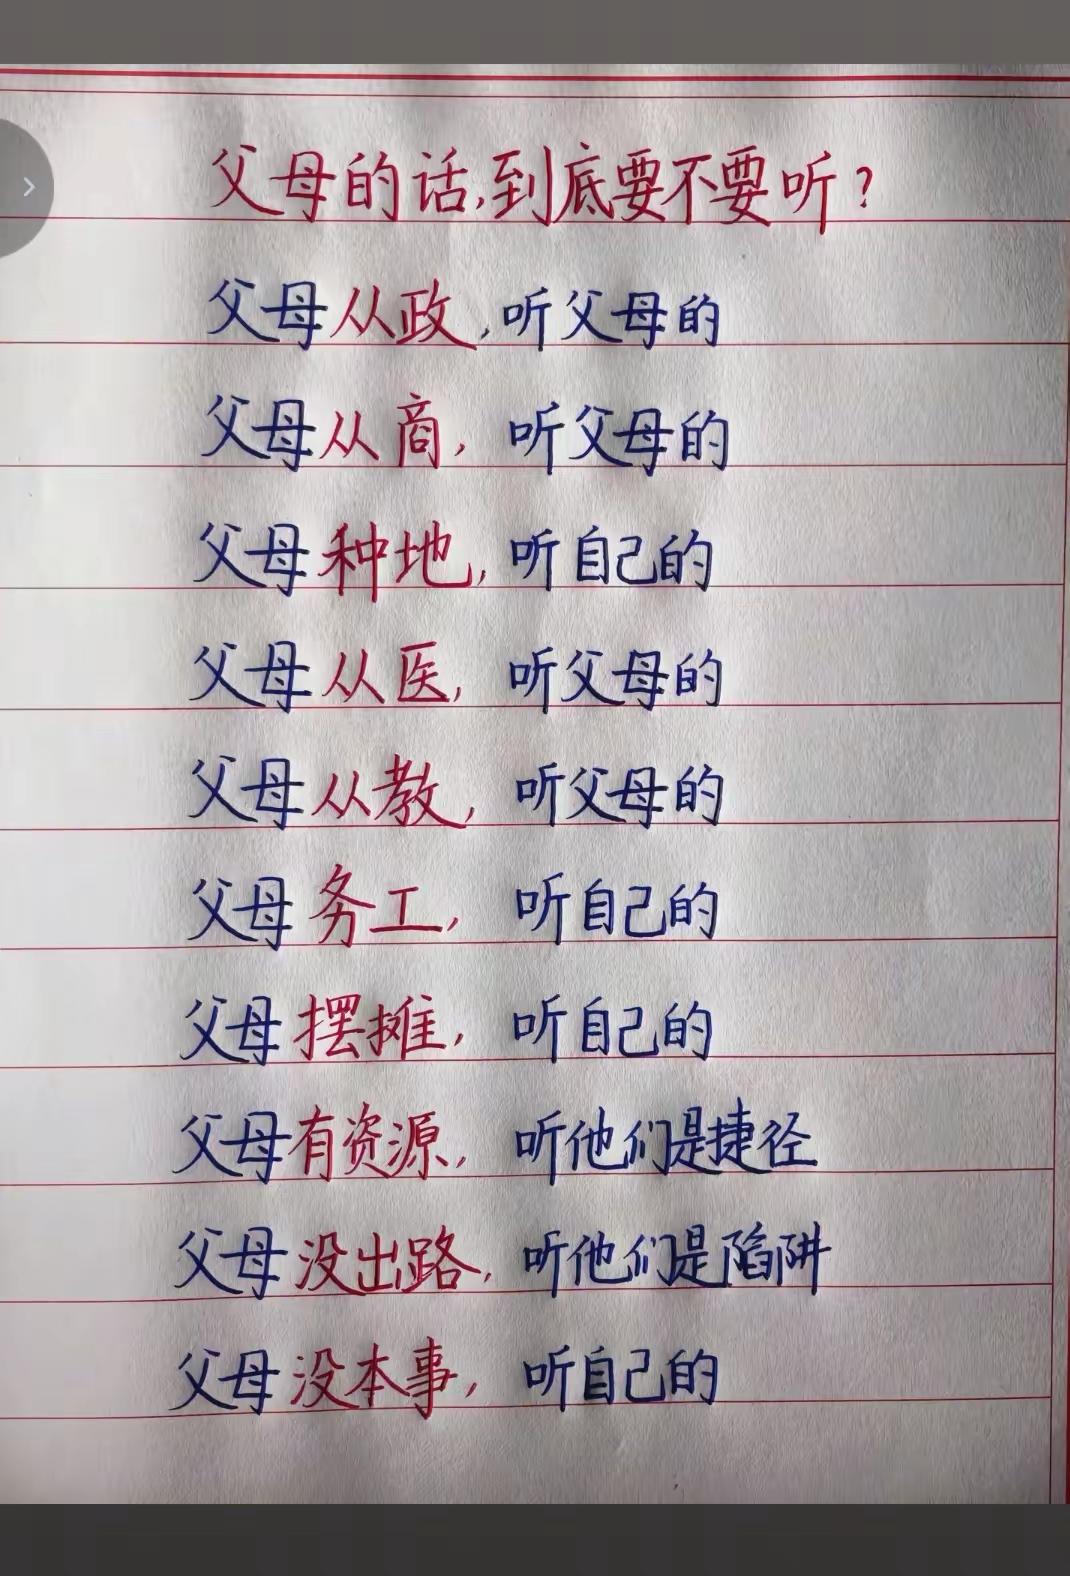 父母的话,到底要不要听?
父母从政,听父母的
父母从商,听父母的
父母种地,听自己的
父母从医,听父母的
父母从教,听父母的
父母务工,听自己的
父母摆摊,听自己的
父母有资源,听他们是捷径
父母没出路,听他们是陷阱
父母没本事,听自己的